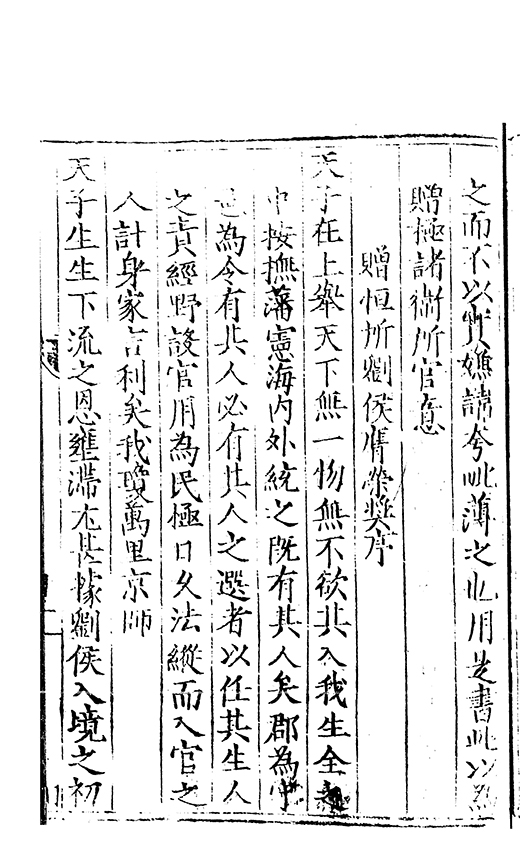 之而不以實譙諸夸毗薄之北用是書此以為
贈極諸衛所官意
贈恒所劉侯膺榮獎序
天子在上舉天下無一物無不欲其入我生全
中按撫藩憲海內外統之既有其人矣郡為守
邑為令有其人必有其人之選者以任其生人
之責經野設官用為民極口久法縱而入官之
人計身家言利矣我瓊萬里京師
天子生生下流之恩壅滯尤甚據劉侯入境之初